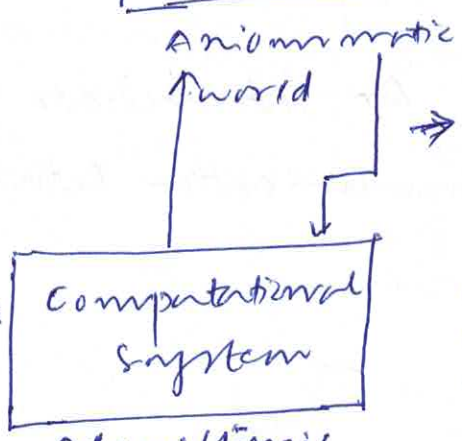 Axiommmatic
world
Computational
System